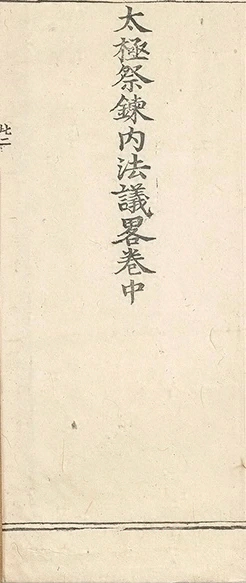 太極祭鍊内法議畧卷中